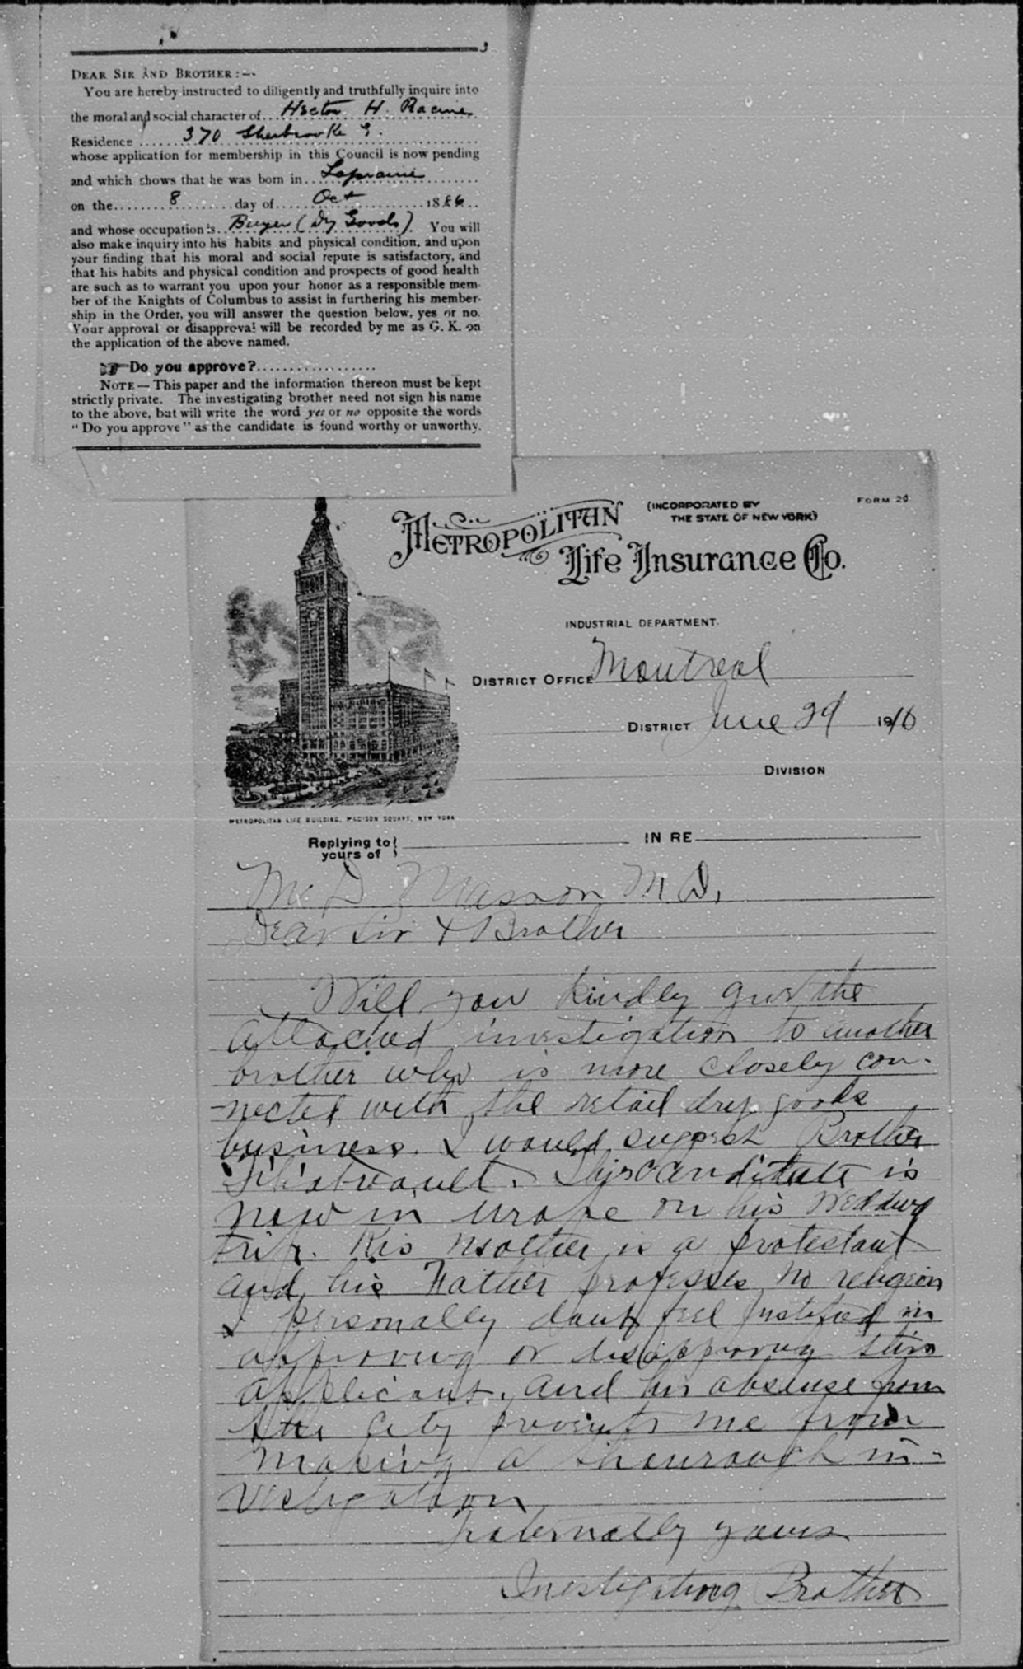 DEAR SIR AND BROTHER:—
You are hereby instructed to diligently and truthfully inquire into
the moral and social character of Hector H. Racine
Residence 370 Sherbrooke E.
whose application for membership in this Council is now pending
and which shows that he was born in Laprairie
on the 8 day of Oct 1886
and whose occupation is Buyer (Dry Goods). You will
also make inquiry into his habits and physical condition, and upon
your finding that his moral and social repute is satisfactory, and
that his habits and physical condition and prospects of good health
are such as to warrant you upon your honor as a responsible mem-
ber of the Knights of Columbus to assist in furthering his member-
ship in the Order, you will answer the question below, yes or no.
Your approval or disapproval will be recorded by me as G. K. on
the application of the above named.
Do you approve?
NOTE — This paper and the information thereon must be kept
strictly private. The investigating brother need not sign his name
to the above, but will write the word yes or no opposite the words
"Do you approve" as the candidate is found worthy or unworthy.
FORM 20
METROPOLITAN (INCORPORATED BY
THE STATE OF NEW YORK)
Life Insurance Co.
INDUSTRIAL DEPARTMENT.
DISTRICT OFFICE Montreal
DISTRICT June 29 1916
DIVISION
METROPOLITAN LIFE BUILDING, MADISON SQUARE, NEW YORK
Replying to
yours of
IN RE
Masson M.D.
Dear Sir & Brother
Will you kindly give the
attached investigation to another
brother who is more closely con-
nected with the retail dry goods
business. I would suggest Brother
This canditate is
now in urope on his wedding
trip. His Mother is a protestant
and his Father professes no religion
I personally dont feel justified in
approving or disapproving this
applicant, and his absense from
the city prevents me from
making a thourough in-
vestigation
Fraternally yours
Investigating Brother